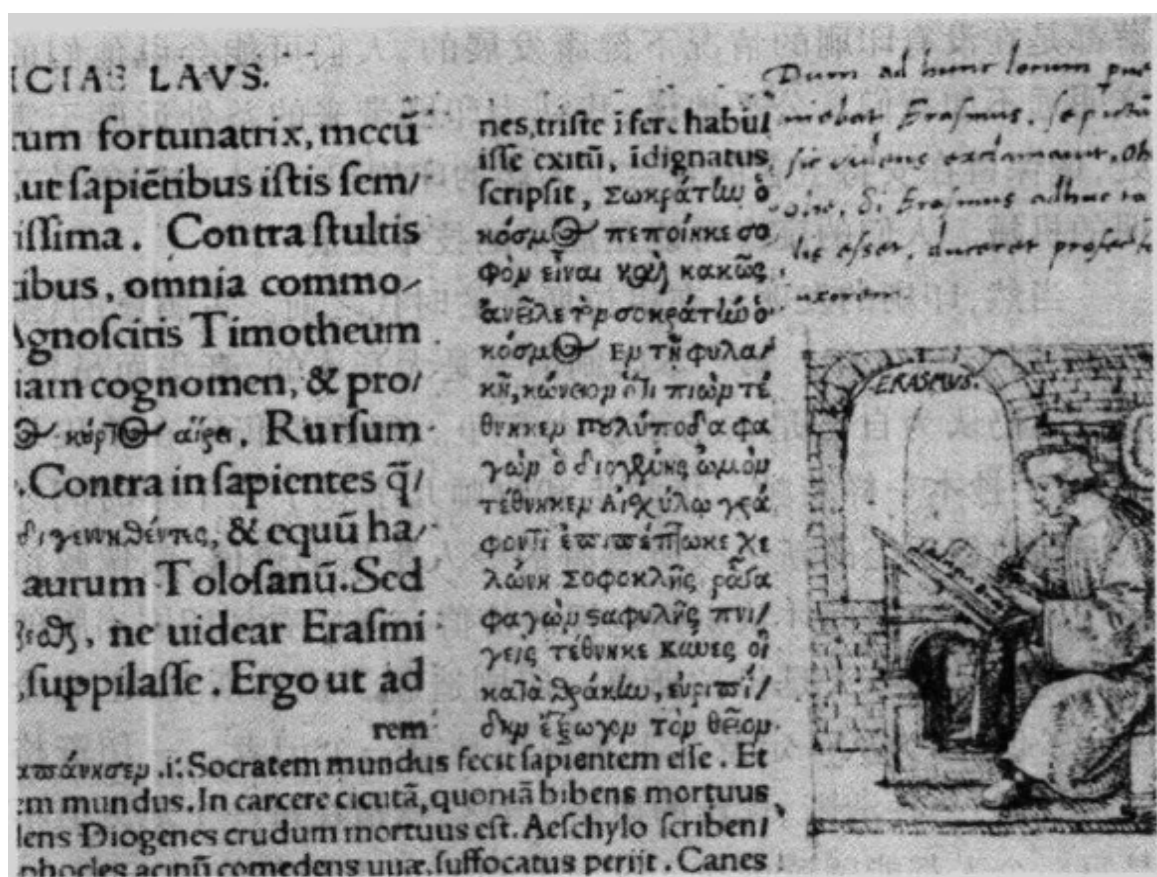 ICIAE LAVS.
rum fortunatrix, mecū
ut ſapiētibus iſtis ſem/
iſſima. Contra ſtultis
ibus, omnia commo/
Agnoſcitis Timotheum
iam cognomen, & pro/
κύρτος αἵρει. Rurſum
. Contra in ſapientes q̃/
γεννηθέντες, & equū ha/
aurum Toloſanū. Sed
, ne uidear Eraſmi
ſuppilaſſe. Ergo ut ad
rem
nes, triſte ī fere habu/
iſſe exitū, īdignatus
ſcripſit, Σωκράτην ὁ
κόσμος πεποίηκε σο
φὸν εἶναι καὶ κακῶς
ἀνεῖλε τὸν σοκράτην ὁ
κόσμος Εν τῇ φυλα/
κῇ, κώνειον ὅτι πιὼν τέ
θνηκεν πολύποδα φα
γὼν ὁ διογένης ὠμὸν
τέθνηκεν Αἰσχύλῳ γρά
φοντι ἐπιπέπτωκε χε
λώνη Σοφοκλῆς ῥᾶγα
φαγὼν σταφυλῆς πνι/
γεὶς τέθνηκε Κάνες οἱ
κατὰ θράκην, εὐριπί/
δην ἔτρωγον τὸν θεῖον
.i. Socratem mundus fecit ſapientem eſſe. Et
em mundus. In carcere cicutā, quoniā bibens mortuus
dens Diogenes crudum mortuus eſt. Aeſchylo ſcriben/
phocles acinū comedens uuæ, ſuffocatus perijt. Canes
Dum ad hunc locum
Eraſmus, ſe pictū
ſic videns exclamauit, oh
ohe, ſi Eraſmus adhuc ta
lis eſſet, duceret profecto
uxorem
ERASMVS.